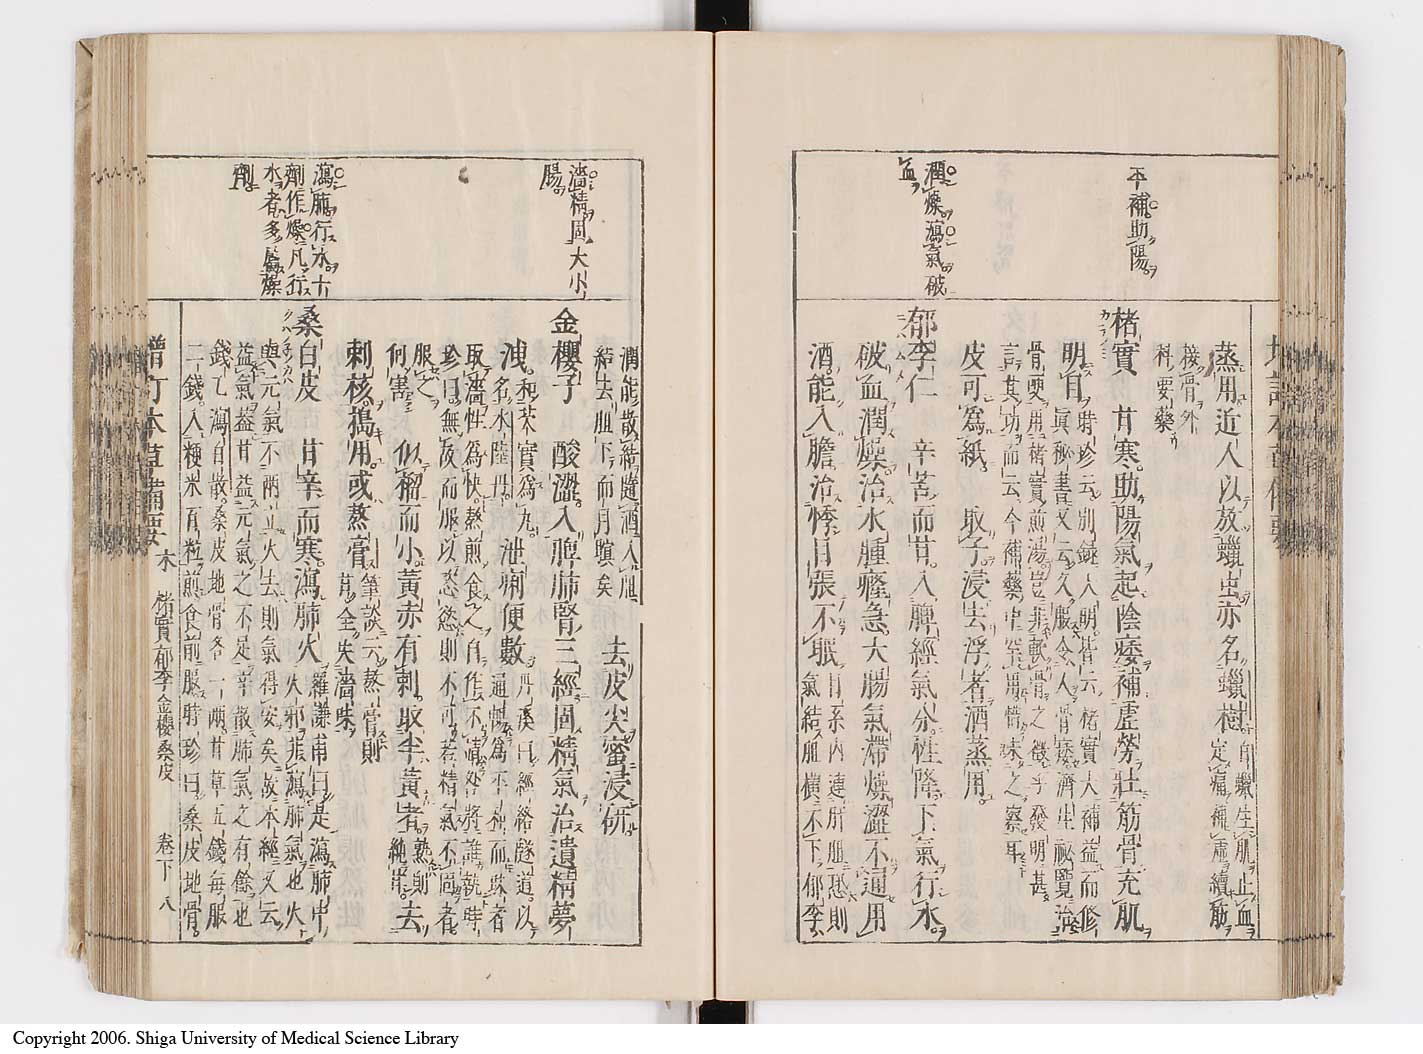 平補助陽
潤燥瀉氣破
血
蒸用近人以放蠟虫亦名蠟樹
白蠟生肌止血
定痛補虛續筋
接骨外
科要藥
楮實 甘寒助陽氣起陰痿補虛勞壯筋骨充肌
明目
時珍云別錄大明皆云楮實大補益而修
真秘書又云久服令人骨痿濟生秘覽治
骨哽用楮實煎湯豈非軟骨之徵乎發明甚
言其功而云今補藥中罕用惜未之察耳
皮可為紙 取子浸去浮者酒蒸用
郁李仁 辛苦而甘入脾經氣分性降下氣行水
破血潤燥治水腫癃急大腸氣滯燥澀不通用
酒能入膽治悸目張不眠
目系內連肝膽恐則
氣結膽橫不下郁李
濇精固大小
腸
瀉肺行水十
劑作燥凡行
水者多屬燥
劑
潤能散結隨酒入膽
結去膽下而目瞑矣
去皮尖蜜浸研
金櫻子 酸澀入脾肺腎三經固精氣治遺精夢
洩
和芡實為丸
名水陸丹
泄痢便數
丹溪曰經絡隧道以
通暢為平和而昧者
取澀性為快熬煎食之自作不靖咎將誰執時
珍曰無故而服以恣慾則不可若精氣不固者
服之
何害
似榴而小黃赤有刺取半黃者熟則純甘去
刺核搗用或熬膏
筆談云熬膏則
甘全失濇味
桑白皮 甘辛而寒瀉肺火
羅謙甫曰是瀉肺中
火邪非瀉肺氣也火
與元氣不兩立火去則氣得安矣故本經又云
益氣益甘益元氣之不足辛散肺氣之有餘也
錢乙瀉白散桑皮地骨各一兩甘草五錢每服
二錢入粳米百粒煎食前服時珍曰桑皮地骨
增訂本草備要 木 楮實郁李金櫻桑皮 卷下 八